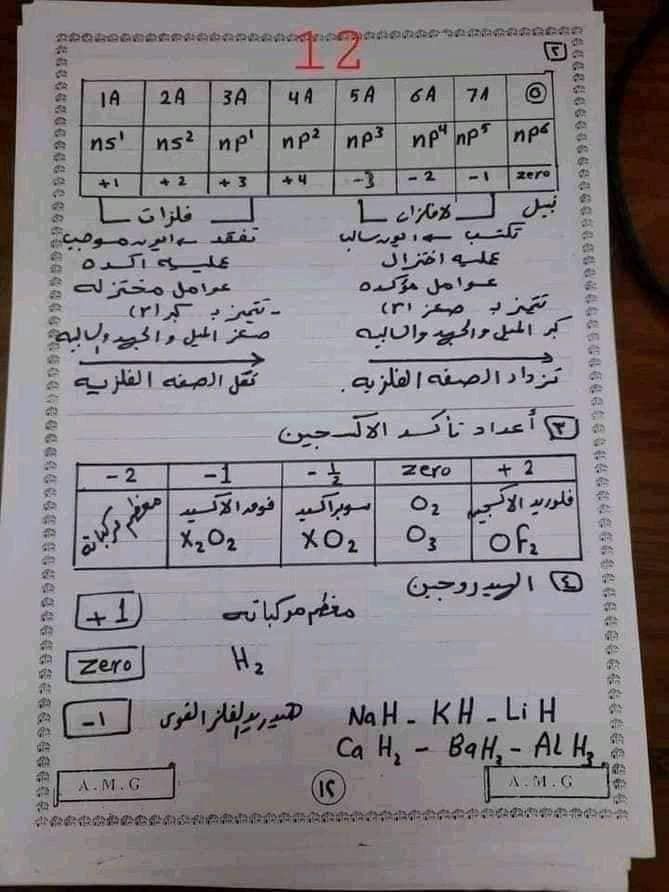 12
٢
1A 2A 3A 4A 5A 6A 7A 0
ns¹ ns² np¹ np² np³ np⁴ np⁵ np⁶
+1 +2 +3 +4 -3 -2 -1 zero
فلزات لافلزات نبيل
تفقد ← ايون موجب
تكتسب ← ايون سالب
عمليه اكسده
عمليه اختزال
عوامل مختزله
عوامل مؤكسده
تتميز بـ كبر (٢)
تتميز بـ صغر (٢)
صغر الميل والجهد والسالبيه
كبر الميل والجهد والسالبيه
تقل الصفه الفلزيه
تزداد الصفه الفلزيه
٣ أعداد تأكسد الاكسجين
-2 -1 -½ zero +2
معظم مركباته فوق الاكسيد سوبراكسيد O₂ فلوريد الاكسجين
X₂O₂ XO₂ O₃ OF₂
٤ الهيدروجين
+1 معظم مركباته
zero H₂
-١ هيدريد الفلز القوى NaH - KH - LiH
CaH₂ - BaH₂ - AlH₃
A.M.G ١٢ A.M.G